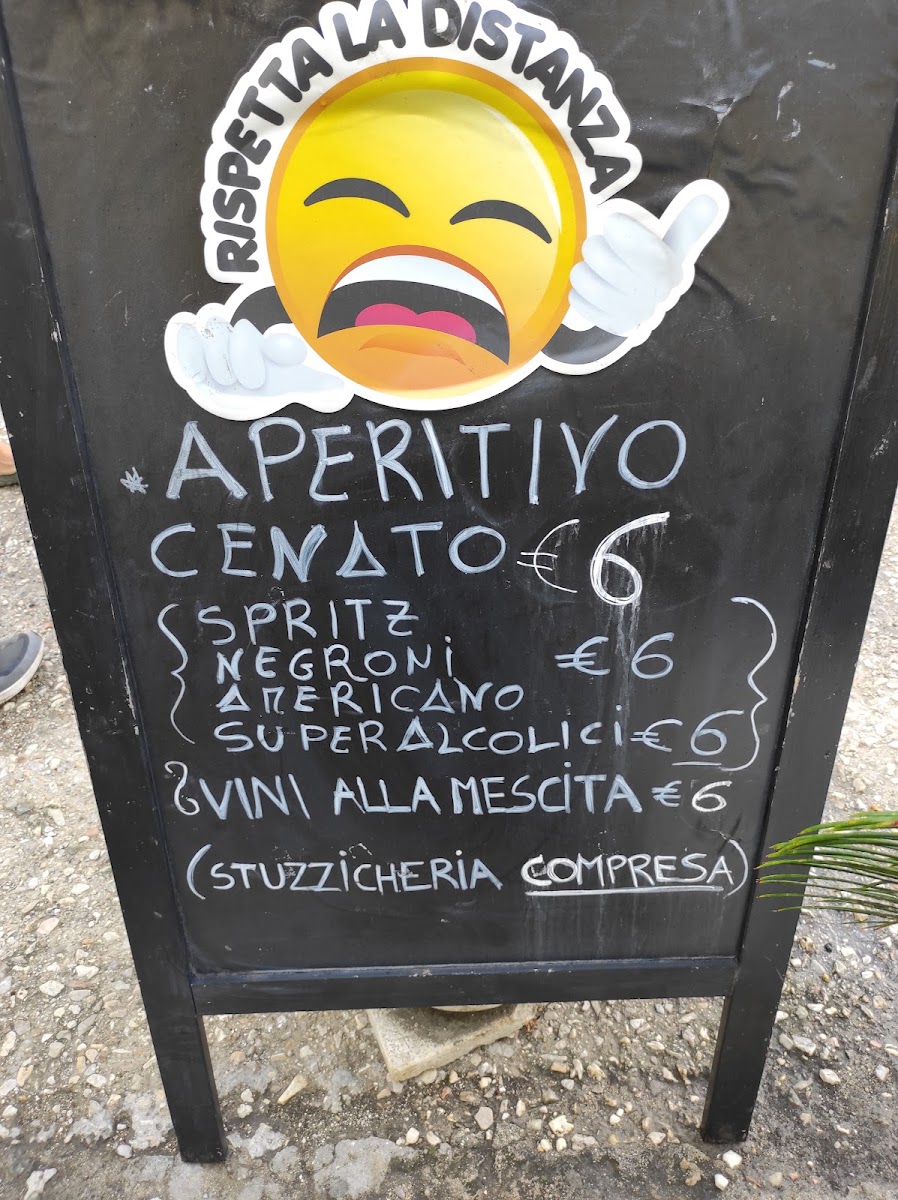 RISPETTA LA DISTANZA
*APERITIVO
CENATO €6
SPRITZ
NEGRONI €6
AMERICANO
SUPERALCOLICI €6
VINI ALLA MESCITA €6
(STUZZICHERIA COMPRESA)